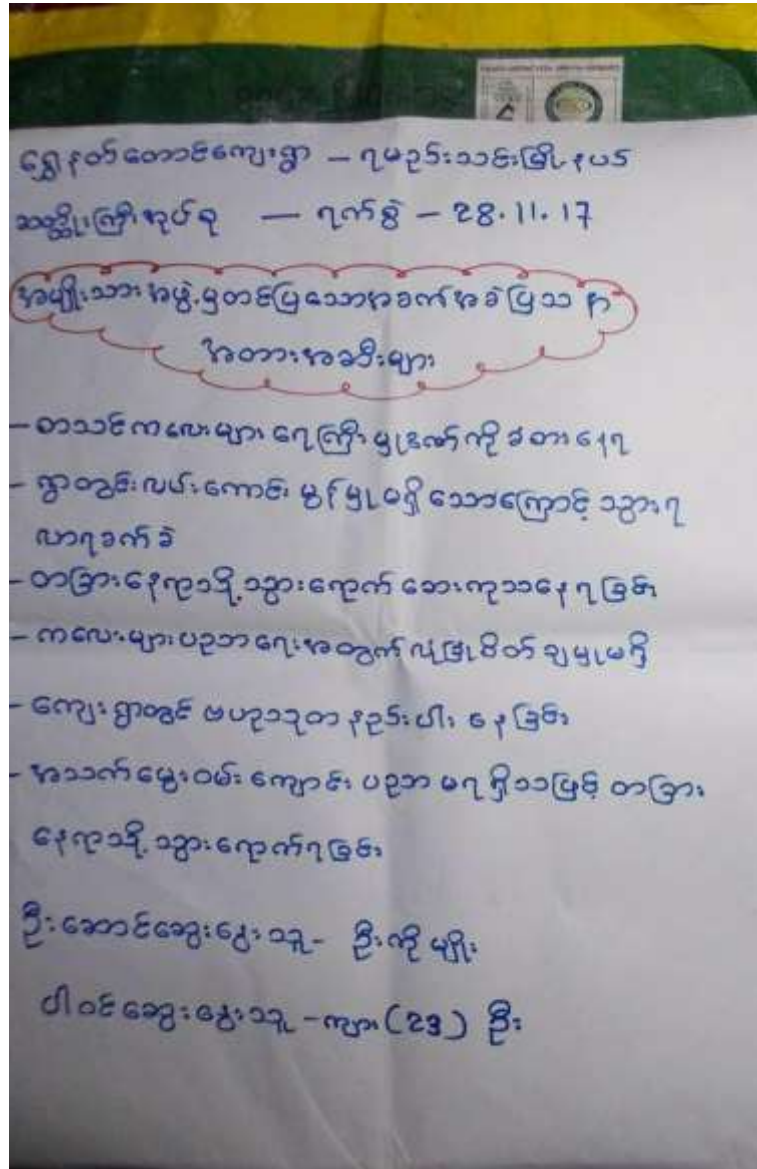 ရွှေနတ်တောင်ကျေးရွာ – ရမည်းသင်းမြို့နယ်
ဆတ္တိုးကြီးအုပ်စု – ရက်စွဲ – 28.11.17
အမျိုးသားအဖွဲ့မှတင်ပြသောအခက်အခဲပြသနာ
အတားအဆီးများ
– တသင်ကလေးများ ရေကြီးမှုဒဏ်ကို ခံတားနေရ
– ရွာတွင်းလမ်းကောင်း မွန်မှုမရှိသောကြောင့် သွားရ
လာရခက်ခဲ
– တခြားနေရာသို့ သွားရောက် ဆေးကုသနေရခြင်း
– ကလေးများပညာရေးအတွက် လုံခြုံစိတ်ချမှုမရှိ
– ကျေးရွာတွင် ဗဟုသုတ နည်းပါးနေခြင်း
– အသက်မွေးဝမ်းကျောင်း ပညာ မရရှိသဖြင့် တခြား
နေရာသို့ သွားရောက်ရခြင်း
ဦးဆောင်ဆွေးနွေးသူ – ဦးကိုမျိုး
ပါဝင်ဆွေးနွေးသူ – ကျား (23) ဦး